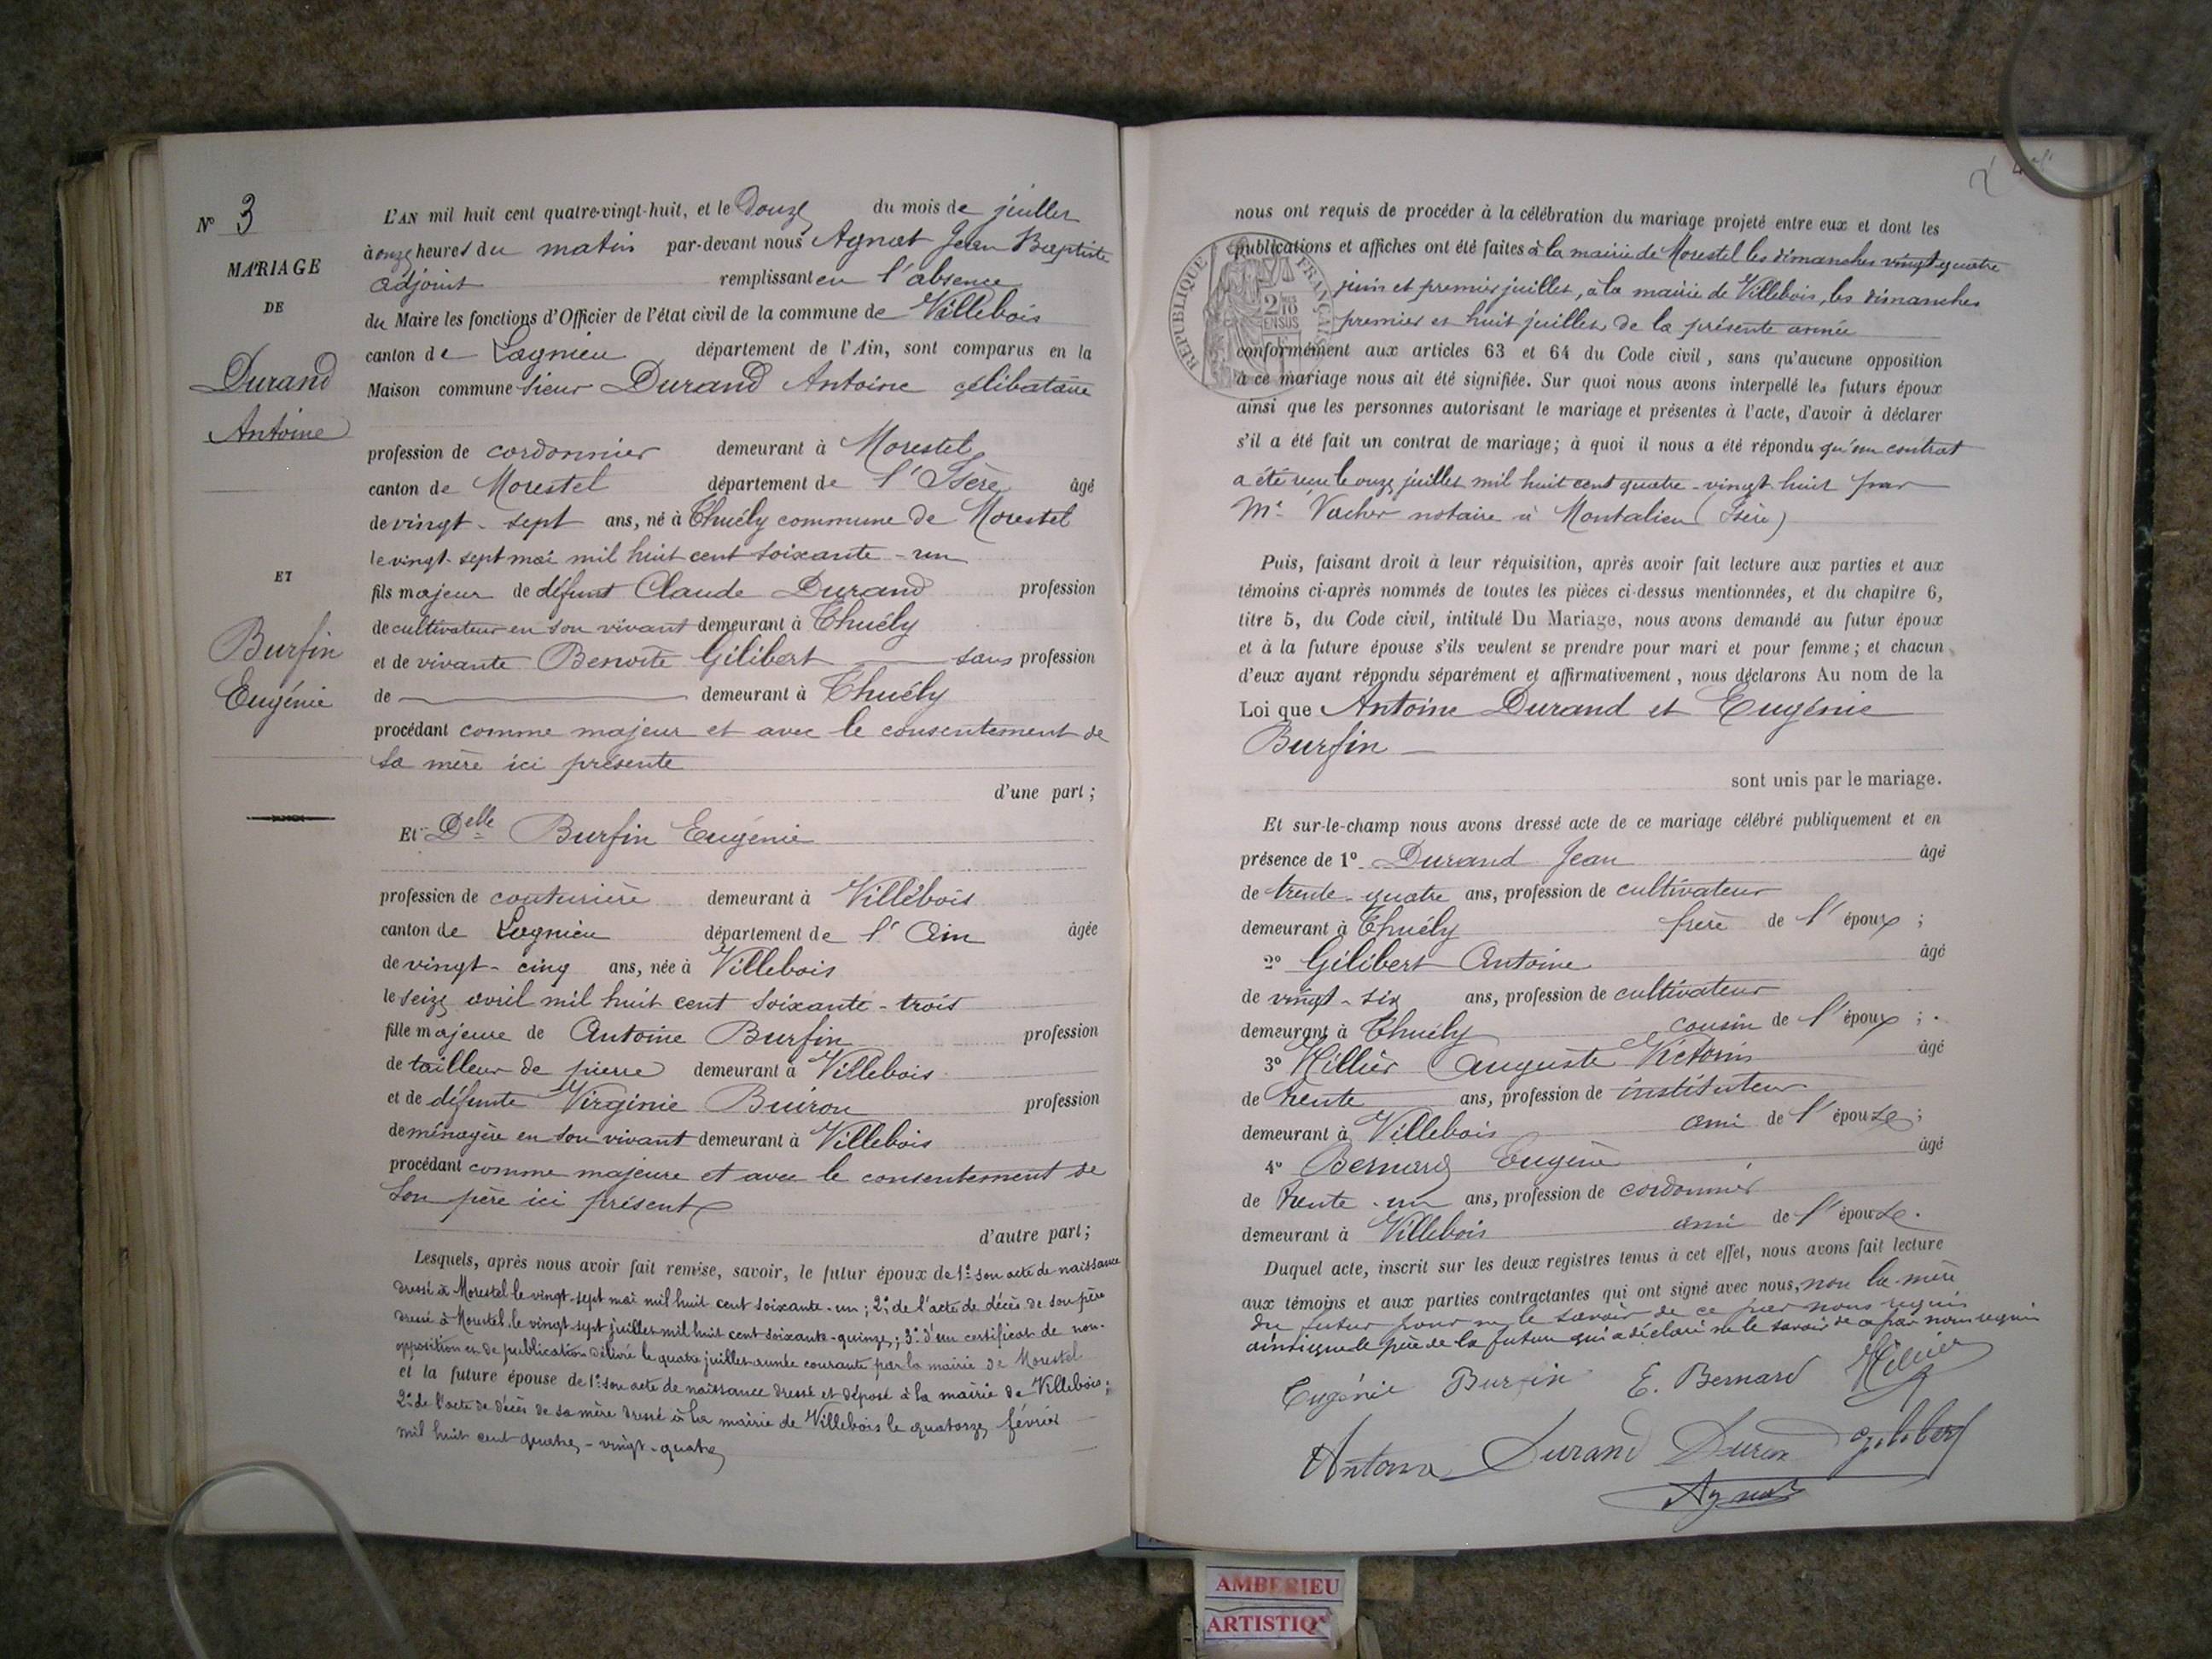 N° 3
MARIAGE
DE
Durand
Antoine
ET
Burfin
Eugénie
L'AN mil huit cent quatre-vingt-huit, et le Douze du mois de juillet
à onze heures du matin par-devant nous Agnat Jean Baptiste
adjoint remplissant en l'absence
du Maire les fonctions d'Officier de l'état civil de la commune de Villebois
canton de Lagnieu département de l'Ain, sont comparus en la
Maison commune Sieur Durand Antoine célibataire
profession de cordonnier demeurant à Morestel
canton de Morestel département de l'Isère âgé
de vingt-sept ans, né à Thuély commune de Morestel
le vingt-sept mai mil huit cent soixante-un
fils majeur de défunt Claude Durand profession
de cultivateur en son vivant demeurant à Thuély
et de vivante Benoite Gilibert sans profession
de demeurant à Thuély
procédant comme majeur et avec le consentement de
sa mère ici présente
d'une part;
Et Delle Burfin Eugénie
profession de couturière demeurant à Villebois
canton de Lagnieu département de l'Ain âgée
de vingt-cinq ans, née à Villebois
le seize avril mil huit cent soixante-trois
fille majeure de Antoine Burfin profession
de tailleur de pierre demeurant à Villebois
et de défunte Virginie Buiron profession
de ménagère en son vivant demeurant à Villebois
procédant comme majeure et avec le consentement de
son père ici présent
d'autre part;
Lesquels, après nous avoir fait remise, savoir, le futur époux de 1° son acte de naissance
dressé à Morestel le vingt-sept mai mil huit cent soixante-un; 2° de l'acte de décès de son père
dressé à Morestel le vingt-sept juillet mil huit cent soixante-quinze; 3° d'un certificat de non-
opposition et de publication délivré le quatre juillet année courante par la mairie de Morestel
et la future épouse de 1° son acte de naissance dressé et déposé à la mairie de Villebois;
2° de l'acte de décès de sa mère dressé à la mairie de Villebois le quatorze février
mil huit cent quatre-vingt-quatre
nous ont requis de procéder à la célébration du mariage projeté entre eux et dont les
publications et affiches ont été faites à la mairie de Morestel les dimanches vingt-quatre
juin et premier juillet, à la mairie de Villebois, les dimanches
premier et huit juillet de la présente année
conformément aux articles 63 et 64 du Code civil, sans qu'aucune opposition
à ce mariage nous ait été signifiée. Sur quoi nous avons interpellé les futurs époux
ainsi que les personnes autorisant le mariage et présentes à l'acte, d'avoir à déclarer
s'il a été fait un contrat de mariage; à quoi il nous a été répondu qu'un contrat
a été reçu le onze juillet mil huit cent quatre-vingt-huit par
Me Vacher notaire à Montalieu (Isère)
Puis, faisant droit à leur réquisition, après avoir fait lecture aux parties et aux
témoins ci-après nommés de toutes les pièces ci-dessus mentionnées, et du chapitre 6,
titre 5, du Code civil, intitulé Du Mariage, nous avons demandé au futur époux
et à la future épouse s'ils veulent se prendre pour mari et pour femme; et chacun
d'eux ayant répondu séparément et affirmativement, nous déclarons Au nom de la
Loi que Antoine Durand et Eugénie
Burfin
sont unis par le mariage.
Et sur-le-champ nous avons dressé acte de ce mariage célébré publiquement et en
présence de 1° Durand Jean âgé
de trente-quatre ans, profession de cultivateur
demeurant à Thuély frère de l'époux;
2° Gilibert Antoine âgé
de vingt-six ans, profession de cultivateur
demeurant à Thuély cousin de l'époux;
3° Millier Auguste Victorin âgé
de trente ans, profession de instituteur
demeurant à Villebois ami de l'épouse;
4° Bernard Eugène âgé
de trente-un ans, profession de cordonnier
demeurant à Villebois ami de l'épouse.
Duquel acte, inscrit sur les deux registres tenus à cet effet, nous avons fait lecture
aux témoins et aux parties contractantes qui ont signé avec nous, non la mère
du futur pour ne le savoir de ce par nous requis
ainsi que le père de la future qui a déclaré ne le savoir de ce par nous requis
Eugénie Burfin E. Bernard Millier
Antoine Durand Durand Gilibert
Agnat
RÉPUBLIQUE FRANÇAISE
2/10
EN SUS
AMBERIEU
ARTISTIQ